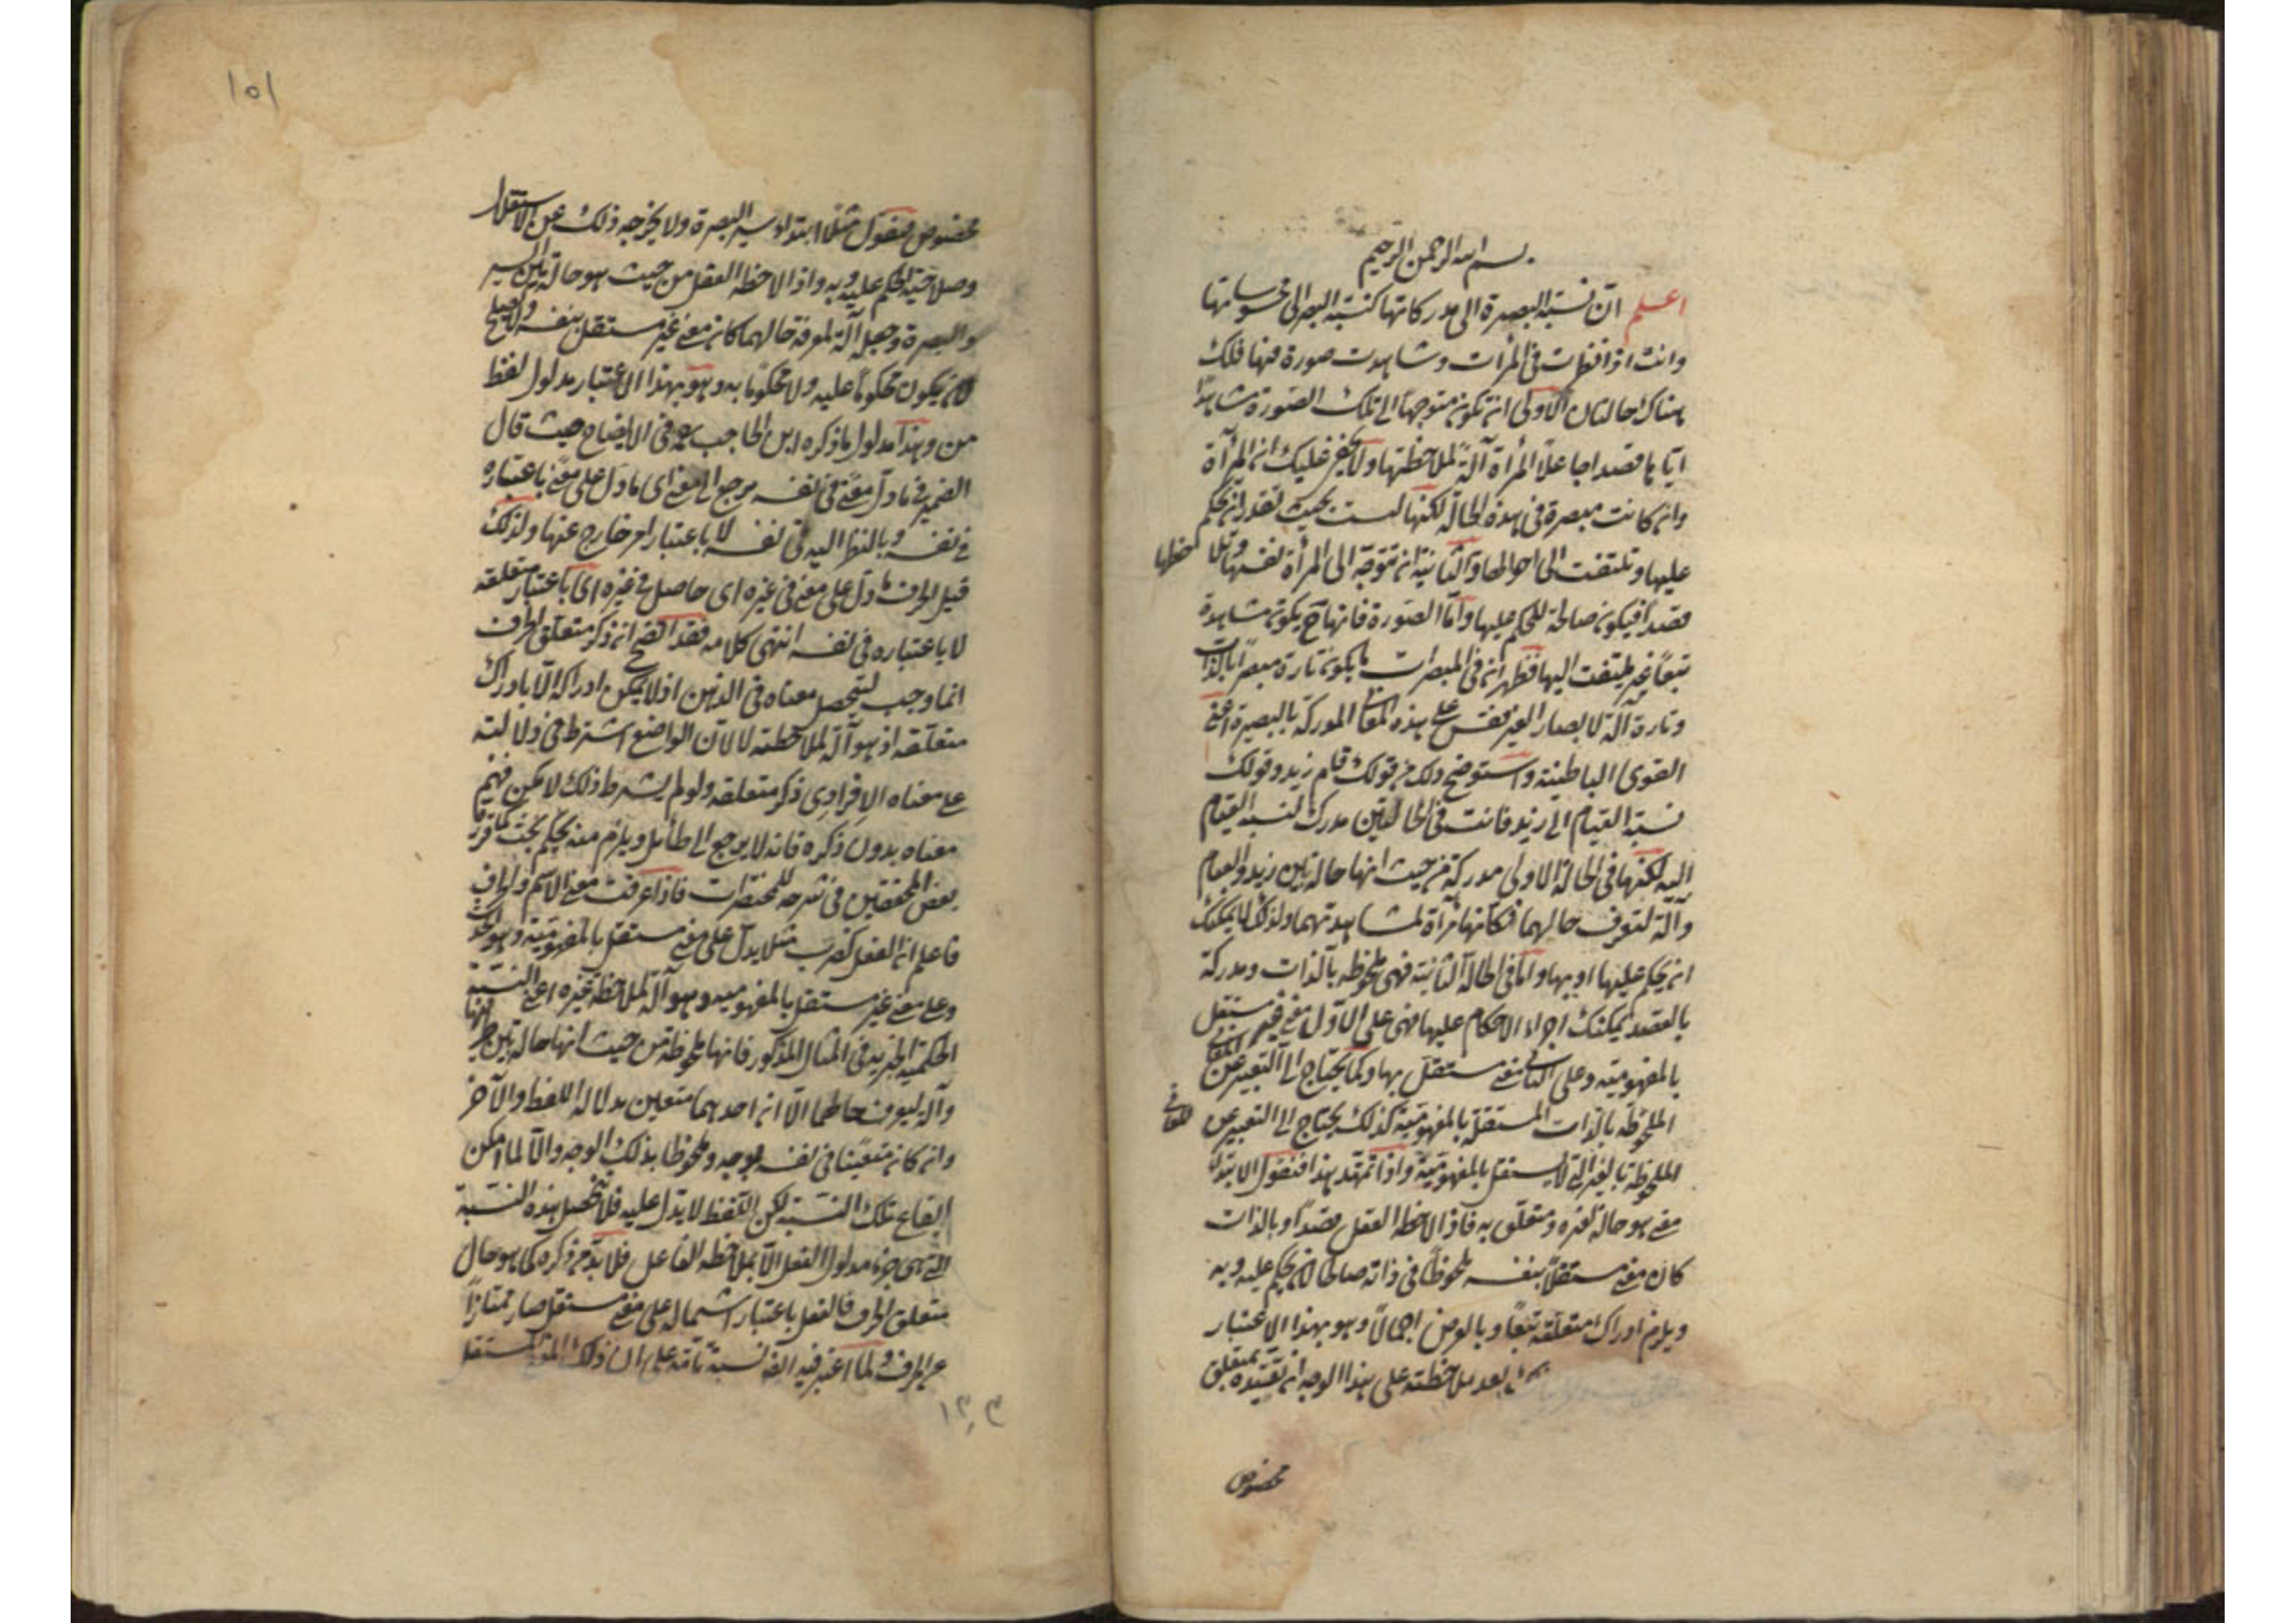 بسم الله الرحمن الرحيم
اعلم انّ نسبة البصيرة الى مدركاتها كنسبة البصر الى محسوساتها
وانت اذا نظرت في المرآت وشاهدت صورة فيها فلك
هناك حالتان الاولى ان تكون متوجهاً الى تلك الصورة مشاهداً
ايّاها قصدا جاعلاً المرأة آلةً لملاحظتها ولا يخفى عليك ان المرآة
وان كانت مبصرة في هذه الحالة لكنها ليست بحيث تقدر ان تحكم
عليها وتلتفت الى احوالها والثانية ان تتوجّه الى المرأة نفسها وتلاحظها
قصدا فيكون صالحة للحكم عليها وامّا الصّورة فانها ح يكون مشاهدة
تبعاً غير ملتفت اليها فظهر ان في المبصرات ما يكون تارة مبصراً بالذات
وتارة آلة لابصار الغير فقس على هذه المعاني المدركة بالبصيرة اعني
القوى الباطنية واستوضح ذلك من قولك قام زيد وقولك
نسبة القيام الى زيد فانت في الحالتين مدرك لنسبة القيام
اليه لكنها في الحالة الاولى مدركة من حيث انها حالة بين زيد والقيام
وآلة لتعرف حالهما فكانها مرآة لمشاهدتهما ولذلك لا يمكنك
ان تحكم عليها او بها واما في الحالة الثانية فهي ملحوظه بالذات ومدركة
بالقصد يمكنك اجراء الاحكام عليها فهي على الاول معنى غير مستقل
بالمفهومية وعلى الثاني معنى مستقل بها وكما يحتاج الى التعبير عن المعاني
الملحوظه بالذات المستقلة بالمفهوميّة كذلك يحتاج الى التعبير عن المعاني
الملحوظة بالغير التي لا يستقل بالمفهوميّة واذا تمهّد هذا فنقول الابتداء
معنى هو حالة لغيره ومتعلق به فاذا لاحظه العقل قصداً وبالذات
كان معنى مستقلاً بنفسه ملحوظاً في ذاته صالحا لان يحكم عليه وبه
ويلزم ادراك متعلقه تبعاً وبالعرض اجمالاً وهو بهذا الاعتبار
بعد ملاحظته على هذا الوجه ان تقيّده بمتعلق
مخصوص
١٥١
مخصوص فتقول مثلا ابتداء سير البصرة ولا يخرجه ذلك عن الاستقلال
وصلاحية الحكم عليه وبه واذا لاحظه العقل من حيث هو حالة بين السير
والبصرة وجعله آلة لمعرفة حالهما كان معنى غير مستقل بنفسه ولا يصلح
لان يكون محكوماً عليه ولا محكوماً به وهو بهذا الاعتبار مدلول لفظ
من وهذا مدلول ما ذكره ابن الحاجب في الايضاح حيث قال
الضمير في ما دل على معنى في نفسه يرجع الى معنى اى ما دل على معنى باعتباره
في نفسه وبالنظر اليه في نفسه لا باعتبار امر خارج عنها ولذلك
قيل الحرف ما دل على معنى في غيره اى حاصل في غيره اى باعتبار متعلقه
لا باعتباره في نفسه انتهى كلامه فقد اتضح ان ذكر متعلّق الحرف
انما وجب ليتحصل معناه في الذهن اذ لا يمكن ادراكه الا بادراك
متعلّقه اذ هو آلة لملاحظته لا لان الواضع اشترط في دلالته
على معناه الافرادي ذكر متعلقه ولو لم يشترط ذلك لا يمكن فهم
معناه بدون ذكره فانه لا يرجع الى طائل ويلزم منه تحكم بحت كما قرر
بعض المحققين في شرحه للمختصرات فاذا عرفت معنى الاسم والحرف
فاعلم ان الفعل كضرب مثلا يدل على معنى مستقل بالمفهوميّة وهو الحدث
وعلى معنى غير مستقل بالمفهوميه وهو آلة لملاحظة غيره اعني النسبة
الحكمية الجزئية في المثال المذكور فانها ملحوظة من حيث انها حاله بين طرفيها
وآلة ليعرف حالهما الا ان احدهما متعين بدلالة اللفظ والآخر
وان كان متعينا في نفسه بوجه وملحوظا بذلك الوجه والا لما امكن
ايقاع تلك النسبة لكن اللفظ لا يدل عليه فلا تحصل هذه النسبة
التي هي جزء مدلول الفعل الا بملاحظة الفاعل فلا بد من ذكره كما هو حال
متعلق الحرف فالفعل باعتبار اشتماله على معنى مستقل صار ممتازاً
عن الحرف ولما اعتبر فيه نسبة تامة على ان ذلك المعنى المستقل